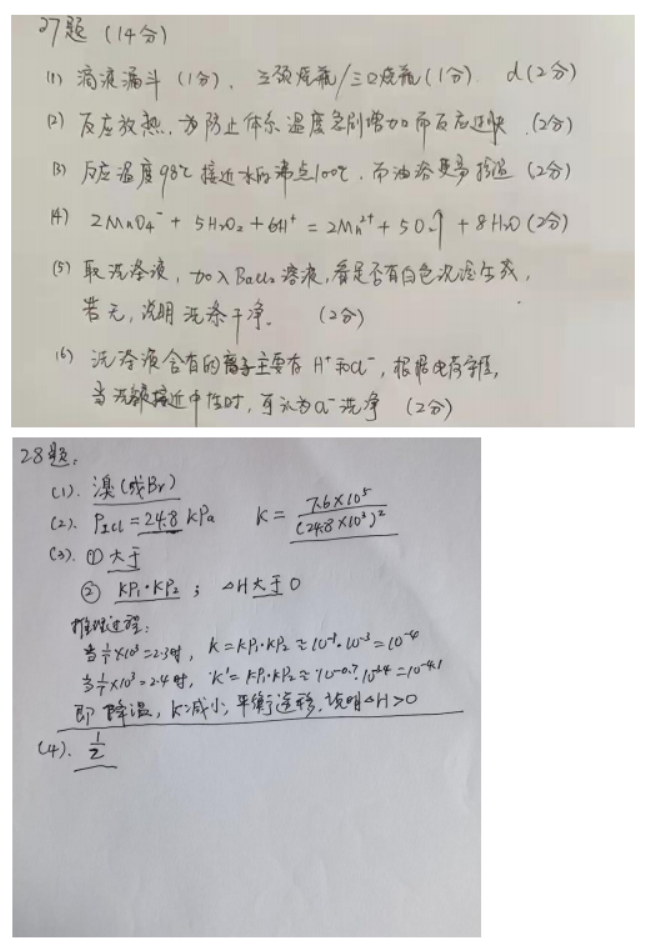 27题 (14分)
(1) 滴液漏斗 (1分)、三颈烧瓶/三口烧瓶 (1分) d (2分)
(2) 反应放热,为防止体系温度急剧增加而反应过快 (2分)
(3) 反应温度98℃接近水的沸点100℃,而油浴更易控温 (2分)
(4) 2MnO₄⁻ + 5H₂O₂ + 6H⁺ = 2Mn²⁺ + 5O₂↑ + 8H₂O (2分)
(5) 取洗涤液,加入BaCl₂溶液,看是否有白色沉淀生成,
若无,说明洗涤干净。 (2分)
(6) 洗涤液含有的离子主要有H⁺和Cl⁻,根据电荷守恒,
当洗涤液接近中性时,可认为Cl⁻洗净 (2分)
28题:
(1). 溴(或Br)
(2). P_ICl = 24.8 kPa K = 7.6×10⁵/(24.8×10³)²
(3). ① 大于
② KP₁·KP₂; ΔH大于0
推理过程:
当1/T×10³=2.3时, K=KP₁·KP₂≈10⁻¹·10⁻³=10⁻⁴
当1/T×10³=2.4时, K'=KP₁·KP₂≈10^-0.7·10^-3.4=10^-4.1
即降温,K减小,平衡逆移,说明ΔH>0
(4). 1/2